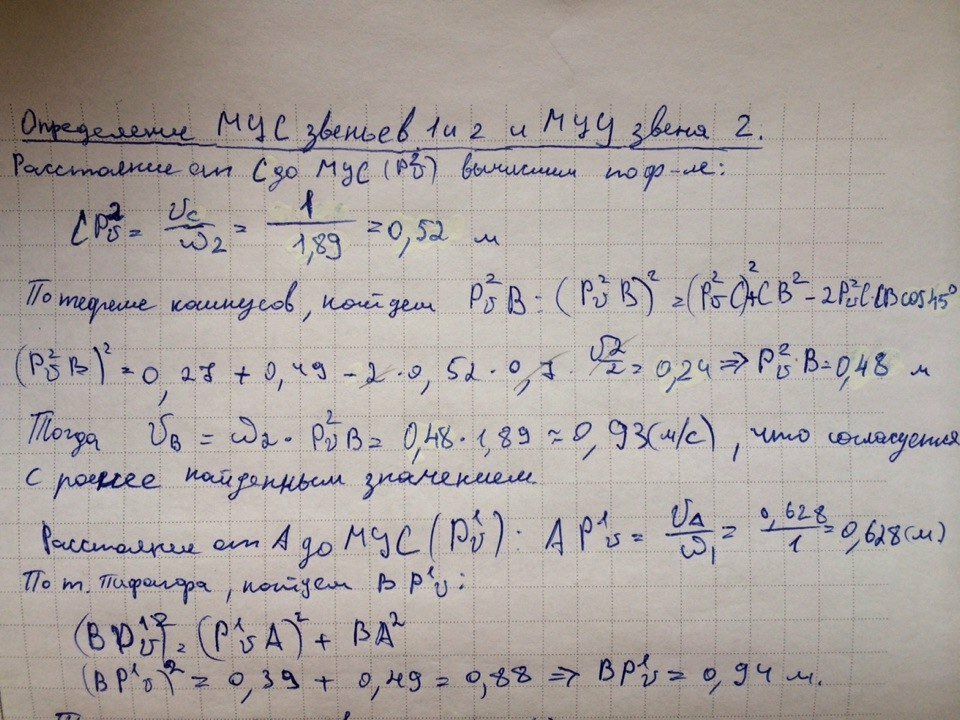 Определение МЦС звеньев 1 и 2 и МЦУ звена 2.
Расстояние от C до МЦС (P²υ) вычислим по ф-ле:
CP²υ = υc/ω2 = 1/1,89 = 0,52 м
По теореме косинусов, найдем P²υB: (P²υB)² = (P²υC)² + CB² - 2P²υC·CB cos45°
(P²υB)² = 0,27 + 0,49 - 2·0,52·0,7·√2/2 = 0,24 ⇒ P²υB = 0,48 м
Тогда υB = ω2 · P²υB = 0,48·1,89 ≈ 0,93(м/с), что согласуется
с ранее найденным значением.
Расстояние от A до МЦС (P¹υ): AP¹υ = υA/ω1 = 0,628/1 = 0,628(м)
По т. Пифагора, найдем BP¹υ:
(BP¹υ)² = (P¹υA)² + BA²
(BP¹υ)² = 0,39 + 0,49 = 0,88 ⇒ BP¹υ = 0,94 м.